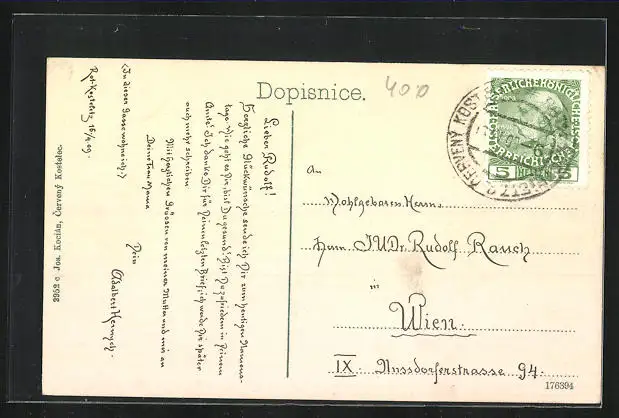 400
Dopisnice.
Lieber Rudolf!
Herzliche Glückwünsche sende ich Dir zum heutigen Namens-
tage. Wie geht es Dir, bist Du gesund? Bist Du zufrieden in Deinem
Amte? Ich danke Dir für Deinen letzten Brief, ich werde Dir später
auch mehr schreiben.
Mit herzlichen Grüssen von meiner Mutter und mir an
Deine Frau Mama
Dein
Adalbert
(In dieser Gasse wohne ich.)
Rot-Kosteletz 16/4 09.
3952 c Jos. Kocián, Červený Kostelec.
ČERVENÝ KOSTELEC
5 HELLER 5
An
Wohlgeboren Herrn
Herrn JUDr. Rudolf Rauch
in
Wien.
IX. Nussdorferstrasse 94.
176394